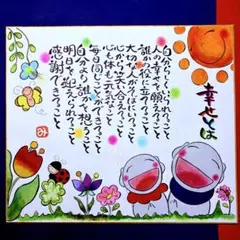 幸せとは
自分らしくいられること
人の幸せを願えること
誰かの役に立てること
大切な人がそばにいること
心から笑い合えること
心も体も元気なこと
毎日同じことができること
自分より誰かを想うこと
明日を迎えられること
感謝できること
み